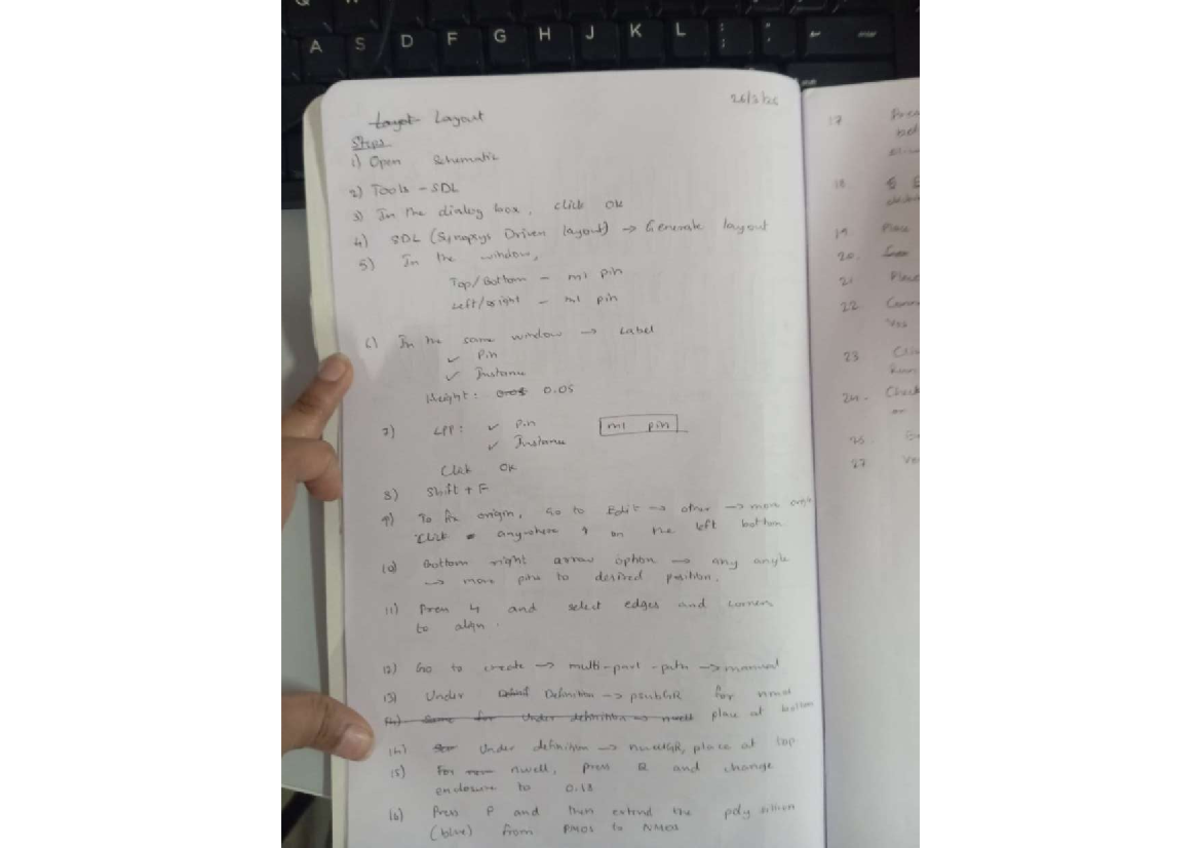 A S D F G H J K L
26/3/25
Layout Layout
Steps
1) Open Schematic
2) Tools - SDL
3) In the dialog box, click OK
4) SDL (Synopsys Driven layout) → Generate layout
5) In the window,
Top/Bottom - m1 pin
Left/Right - m1 pin
6) In the same window → Label
✓ Pin
✓ Instance
Height: 0.05
7) LPP: ✓ Pin m1 pin
✓ Instance
Click OK
8) Shift + F
9) To fix origin, Go to Edit → other → move origin
Click anywhere on the left bottom
10) Bottom right arrow option → any angle
→ move pins to desired position.
11) Press 4 and select edges and corners
to align.
12) Go to create → multi-part-path → manual
13) Under Definition → psubGR for nmos
14) Same for under definition → nwell place at bottom
14) Under definition → nwellGR, place at top
15) For nwell, press Q and change
enclosure to 0.18
16) Press P and then extend the poly silicon
(blue) from PMOS to NMOS
17
18
19. Place
20.
21 Place
22
23
24. Check
or